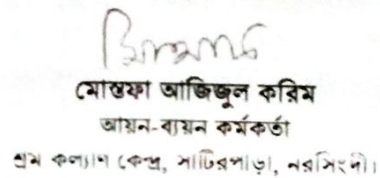 মোস্তফা আজিজুল করিম
আয়ন-ব্যয়ন কর্মকর্তা
শ্রম কল্যাণ কেন্দ্র, সাটিরপাড়া, নরসিংদী।